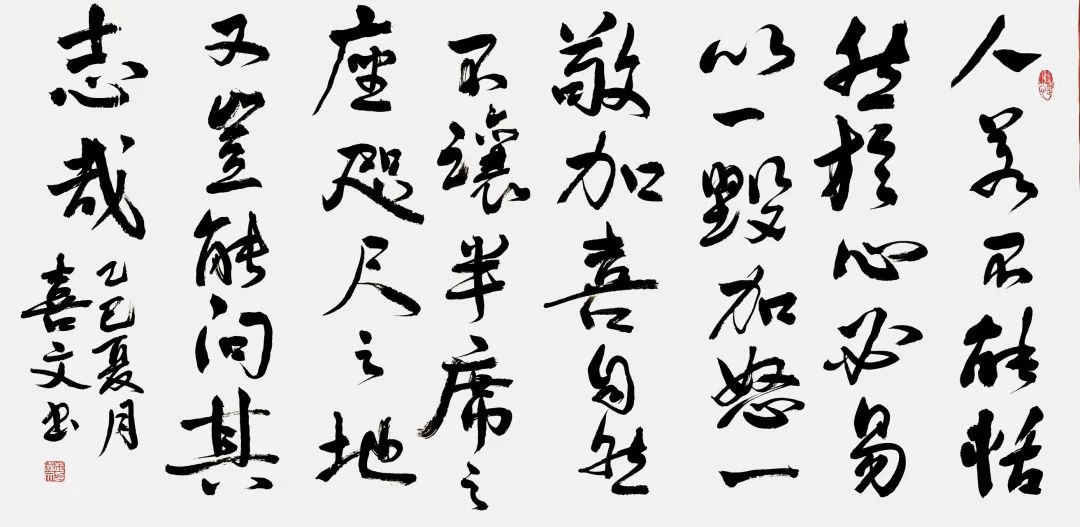 人若不能恬
然於心必易
以一毀加怒一
敬加喜自然
不讓半席之
座咫尺之地
又豈能問其
志哉
乙巳夏月
喜文书